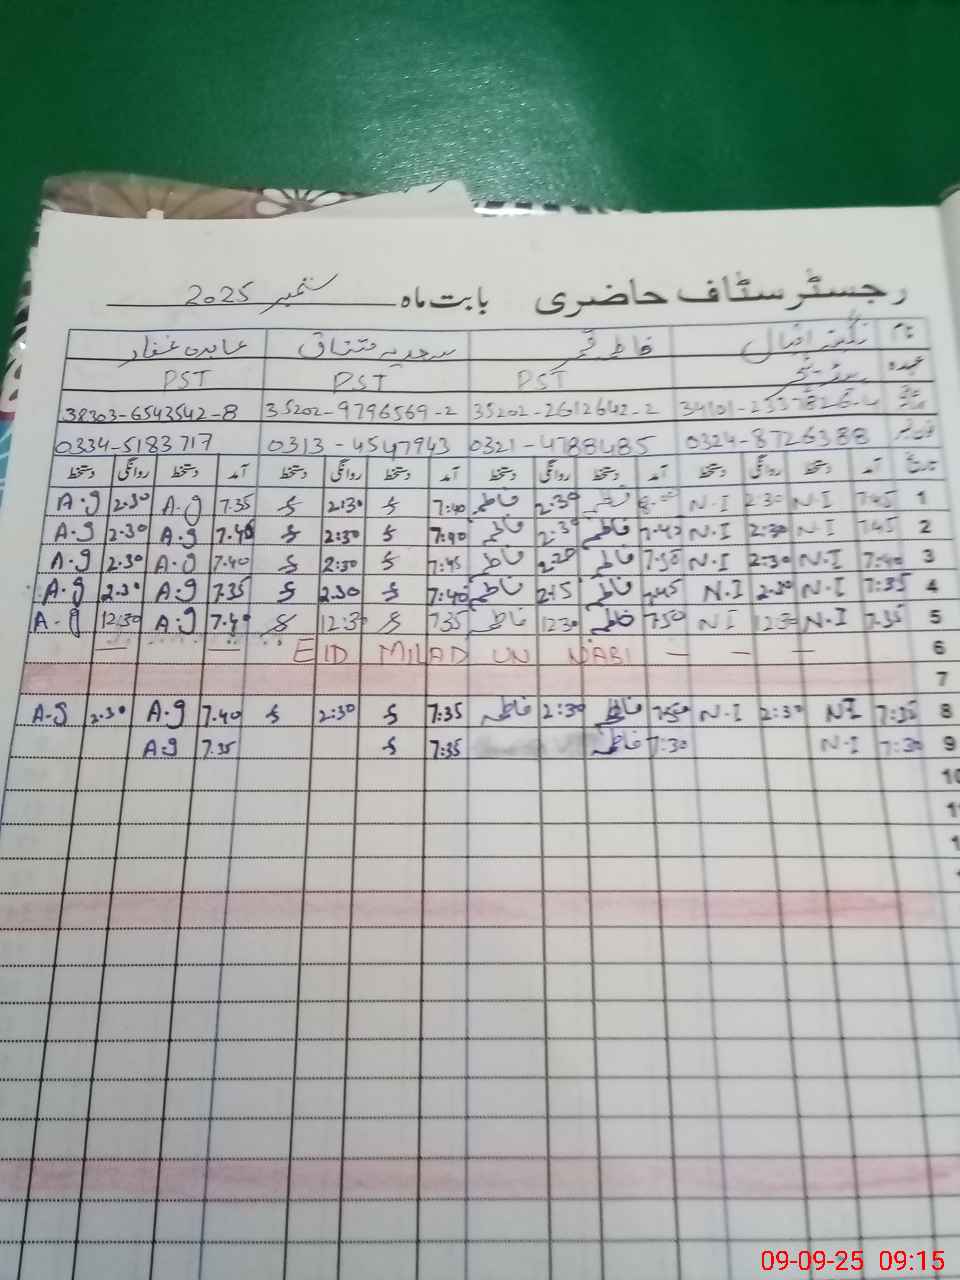 رجسٹر سٹاف حاضری بابت ماہ ستمبر 2025
نام نگینہ اقبال فاطمہ قمر سعدیہ مشتاق عابدہ غفار
عہدہ PST PST PST
34101-2537826-4 35202-2612642-2 35202-9796569-2 38303-6543542-8
فون نمبر 0324-8726388 0321-4788485 0313-4547943 0334-5183717
تاریخ آمد دستخط روانگی دستخط آمد دستخط روانگی دستخط آمد دستخط روانگی دستخط آمد دستخط روانگی دستخط
1 7:45 N-I 2:30 N-I 8:00 فاطمہ 2:30 فاطمہ 7:40 2:30 7.35 A.g 2.30 A.g
2 7:45 N-I 2:30 N-I 7:40 فاطمہ 2:30 فاطمہ 7:40 2:30 7.40 A.g 2.30 A.g
3 7:40 N-I 2:30 N-I 7:50 فاطمہ فاطمہ 7:45 2:30 7.40 A.g 2.30 A.g
4 7:35 N-I 2:30 N.I 7:45 فاطمہ 2:15 فاطمہ 7:40 2:30 7.35 A.g 2.30 A.g
5 7.35 N-I 12:30 N I 7:50 فاطمہ 12:30 فاطمہ 7:35 12:30 7.40 A.g 12:30 A.g
6 — — EID MILAD UN NABI — — —
7
8 7:35 N I 2:30 N-I 7:50 فاطمہ 2:30 فاطمہ 7:35 2:30 7.40 A.g 2.30 A.g
9 7:30 N-I 7:30 فاطمہ 7:35 7.35 A.g
10
09-09-25 09:15